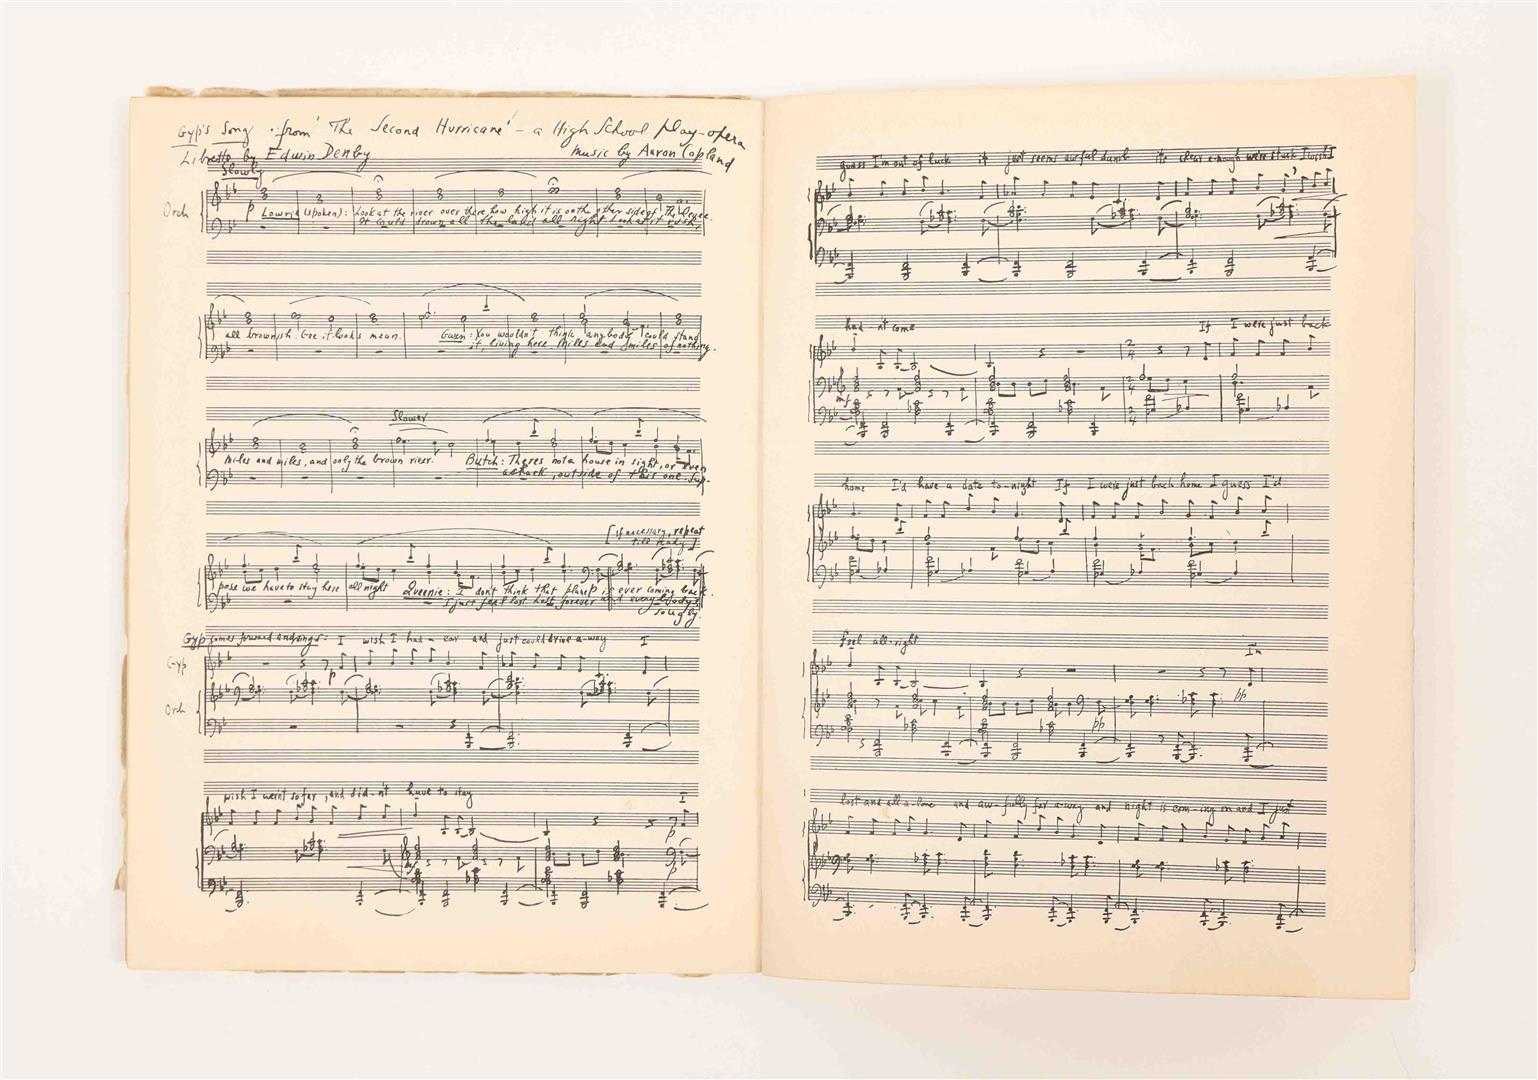 Gyp's Song . from 'The Second Hurricane' - a High School play-opera
Libretto by Edwin Denby music by Aaron Copland
Slowly
Orch
p Lowrie (spoken): Look at the river over there, how high it is on the other side of the levee.
It could drown all the land all right. Look at it rush,
all brownish. Gee it looks mean. Gwen: You wouldn't think anybody could stand
it, living here. Miles and miles of nothing.
Slower
Miles and miles, and only the brown river. Butch: There's not a house in sight, or even
a shack, outside of this one. Sup-
[if necessary, repeat
till ready]
pose we have to stay here all night Queenie: I don't think that plane is ever coming back.
I just feel lost, lost forever and everybody's
so ugly.
Gyp comes forward and sings: I wish I had a car and just could drive a-way I
Gyp
p
Orch
wish I went so far, and did-n't have to stay I
p
mf
p
guess I'm out of luck it just seems awful dumb it's clear e-nough we're stuck I wish I
had-n't come If I were just back
mf
home I'd have a date to-night If I were just back home I guess I'd
feel all-right I'm
pp
pp
lost and all a-lone and aw-fully far a-way and night is com-ing on and I just